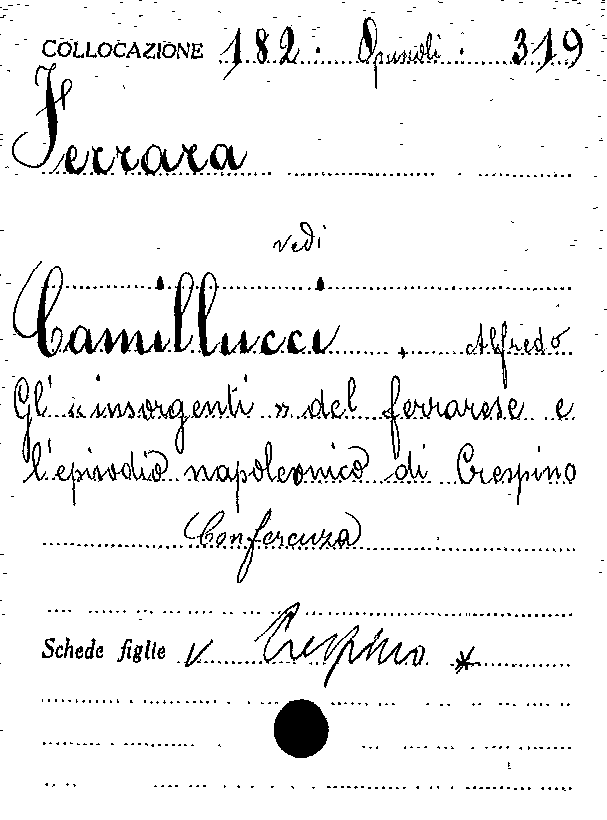 COLLOCAZIONE 182. Opuscoli. 319
Ferrara
vedi
Camillucci, Alfredo
Gl' « insorgenti » del ferrarese e
l'episodio napoleonico di Crespino
Conferenza
Schede figlie v Crespino *